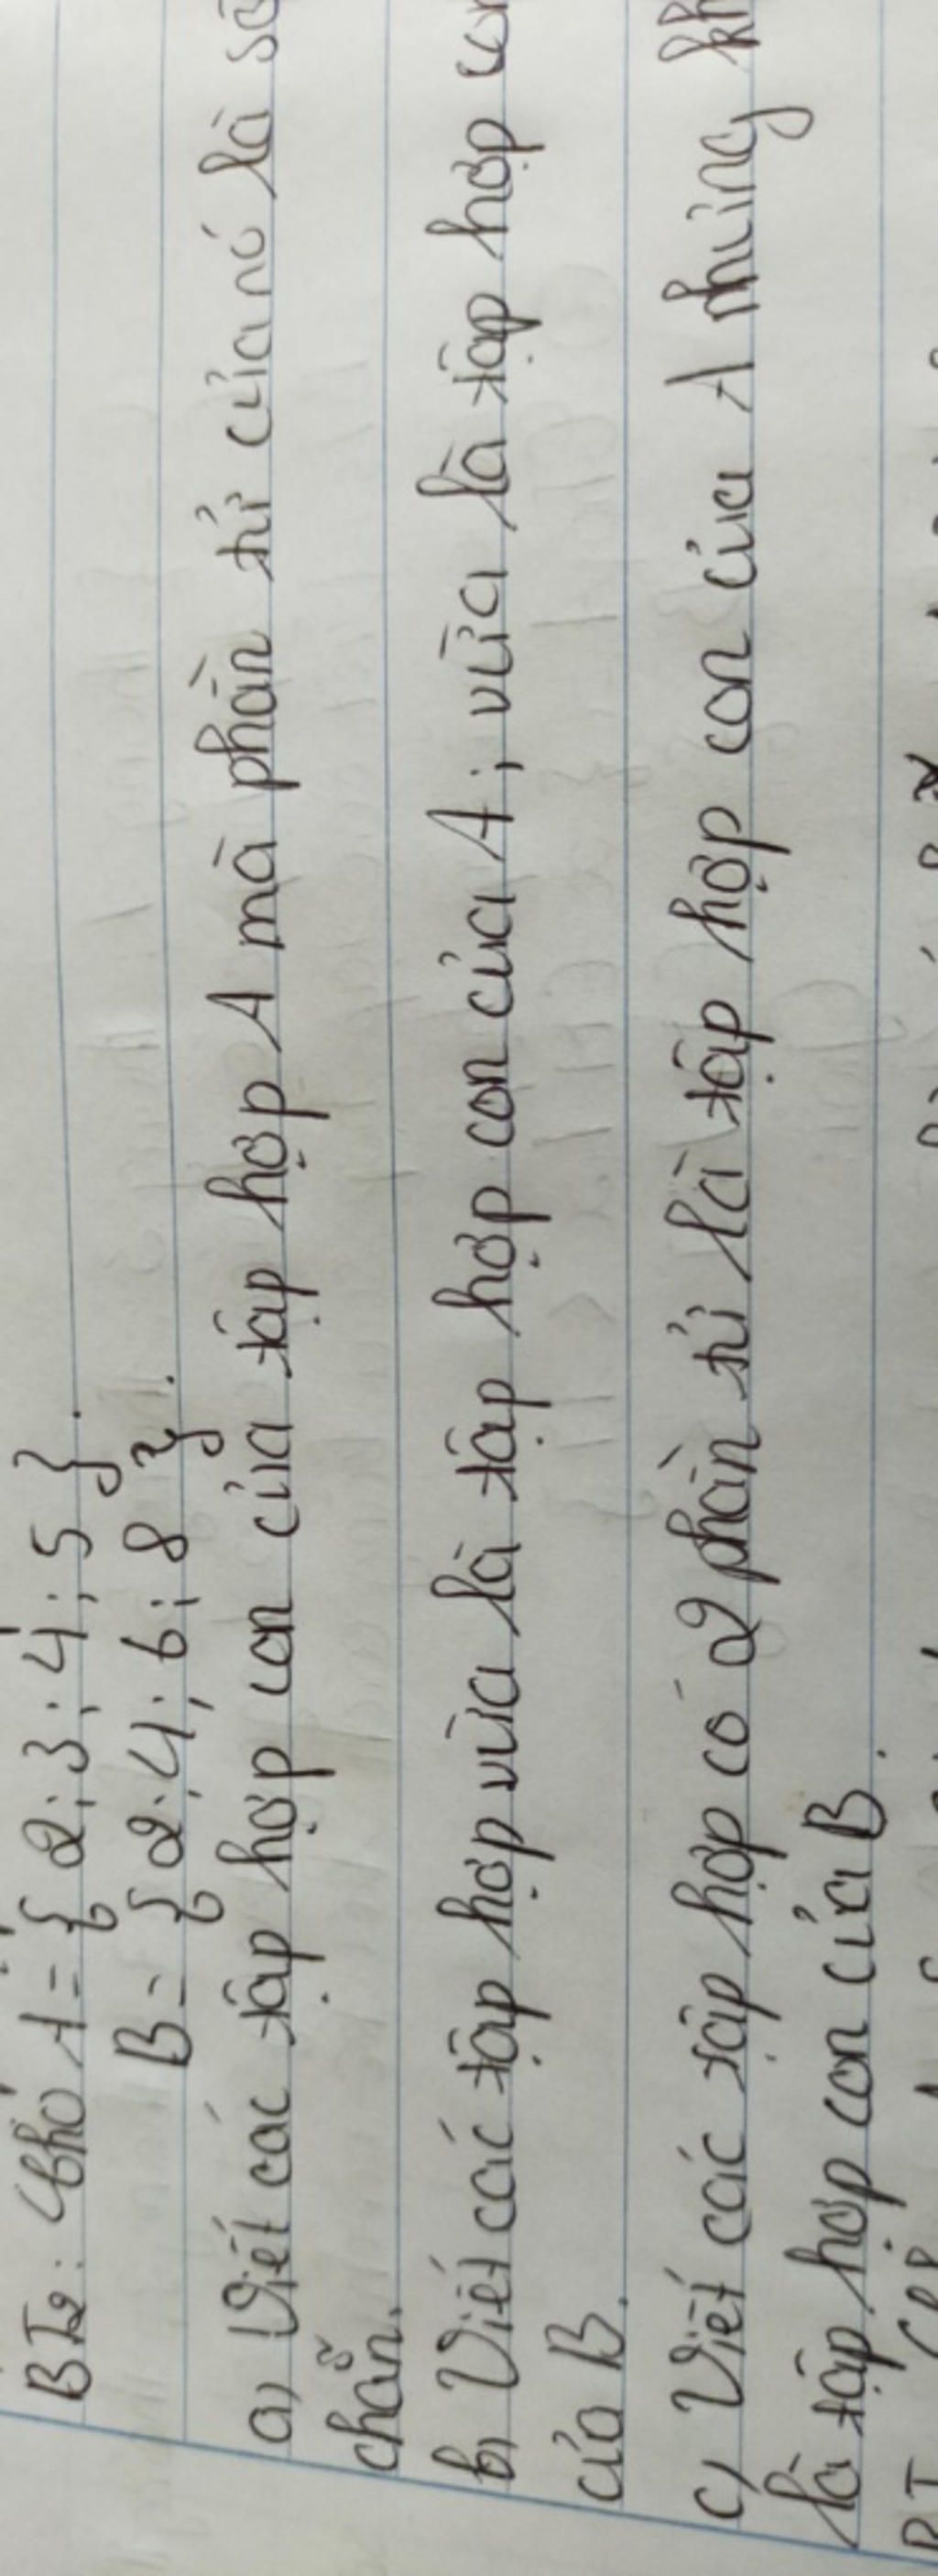 BT2: Cho A = { 2; 3; 4; 5 }.
B = { 2; 4; 6; 8 }.
a) Viết các tập hợp con của tập hợp A mà phần tử của nó là số
chẵn.
b) Viết các tập hợp vừa là tập hợp con của A; vừa là tập hợp con
của B.
c) Viết các tập hợp có 2 phần tử là tập hợp con của A nhưng kh
là tập hợp con của B.
BT